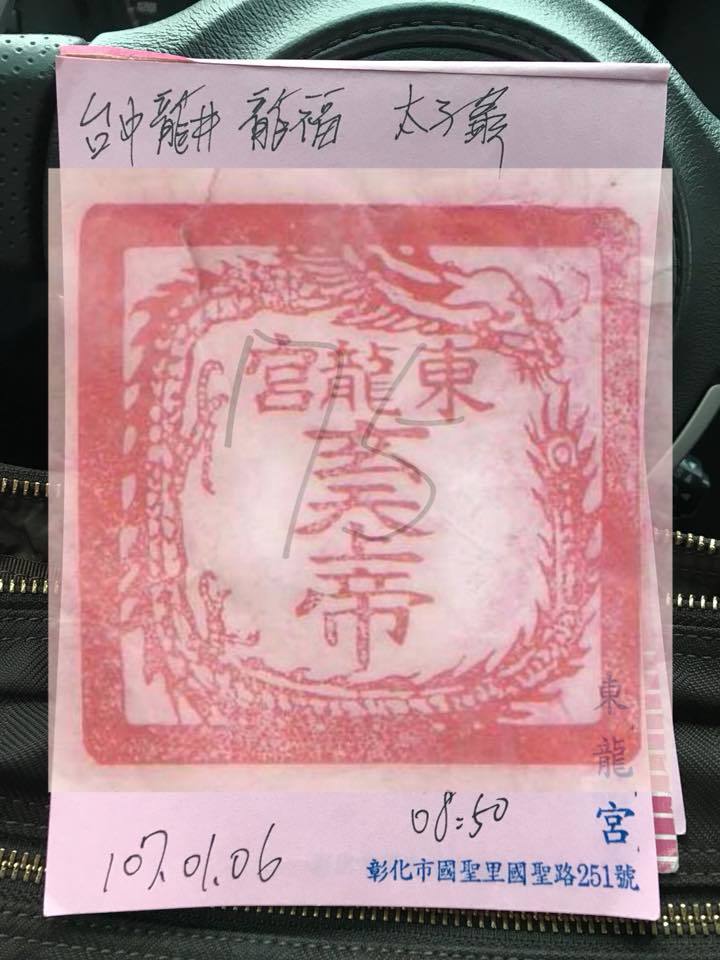 台中龍井 龍福 太子
東龍宮
玄天上帝
75
東龍宮
08:50
107.01.06
彰化市國聖里國聖路251號